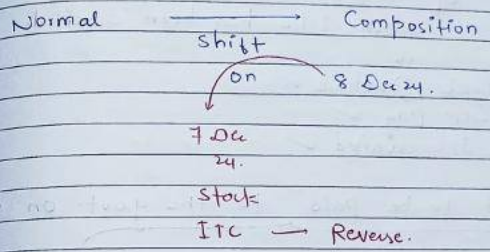 Normal ⟶ Composition
shift
on 8 Dec 24.
7 Dec
24.
Stock
ITC → Reverse.